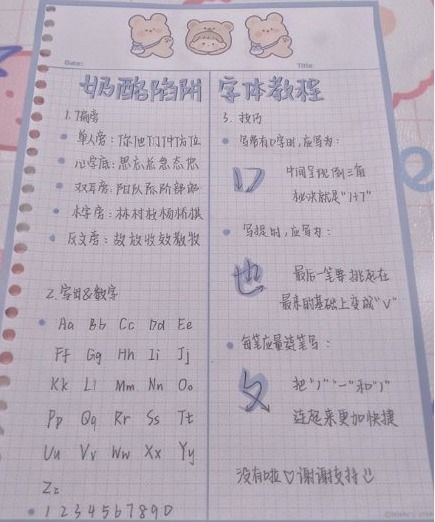 Date:
Title:
奶酪陷阱 字体教程
1.偏旁
单人旁:你他们什仿位
心字底:思忘总急态您
双耳旁:阳队陈阶部邮
木字旁:林村杜杨桥棋
反文旁:故放收效教牧
2.字母&数字
Aa Bb Cc Dd Ee
Ff Gg Hh Ii Jj
Kk Ll Mm Nn Oo
Pp Qq Rr Ss Tt
Uu Vv Ww Xx Yy
Zz
1 2 3 4 5 6 7 8 9 0
3. 技巧
写带有口字时,应写为:
中间呈现倒三角
秘诀就是"1+7"
写提时,应写为:
最后一笔要
最末的基础上变成"V"
每笔应量连笔写:
把"丿""一"和"丿"
连起来更加快捷
没有啦♡谢谢支持